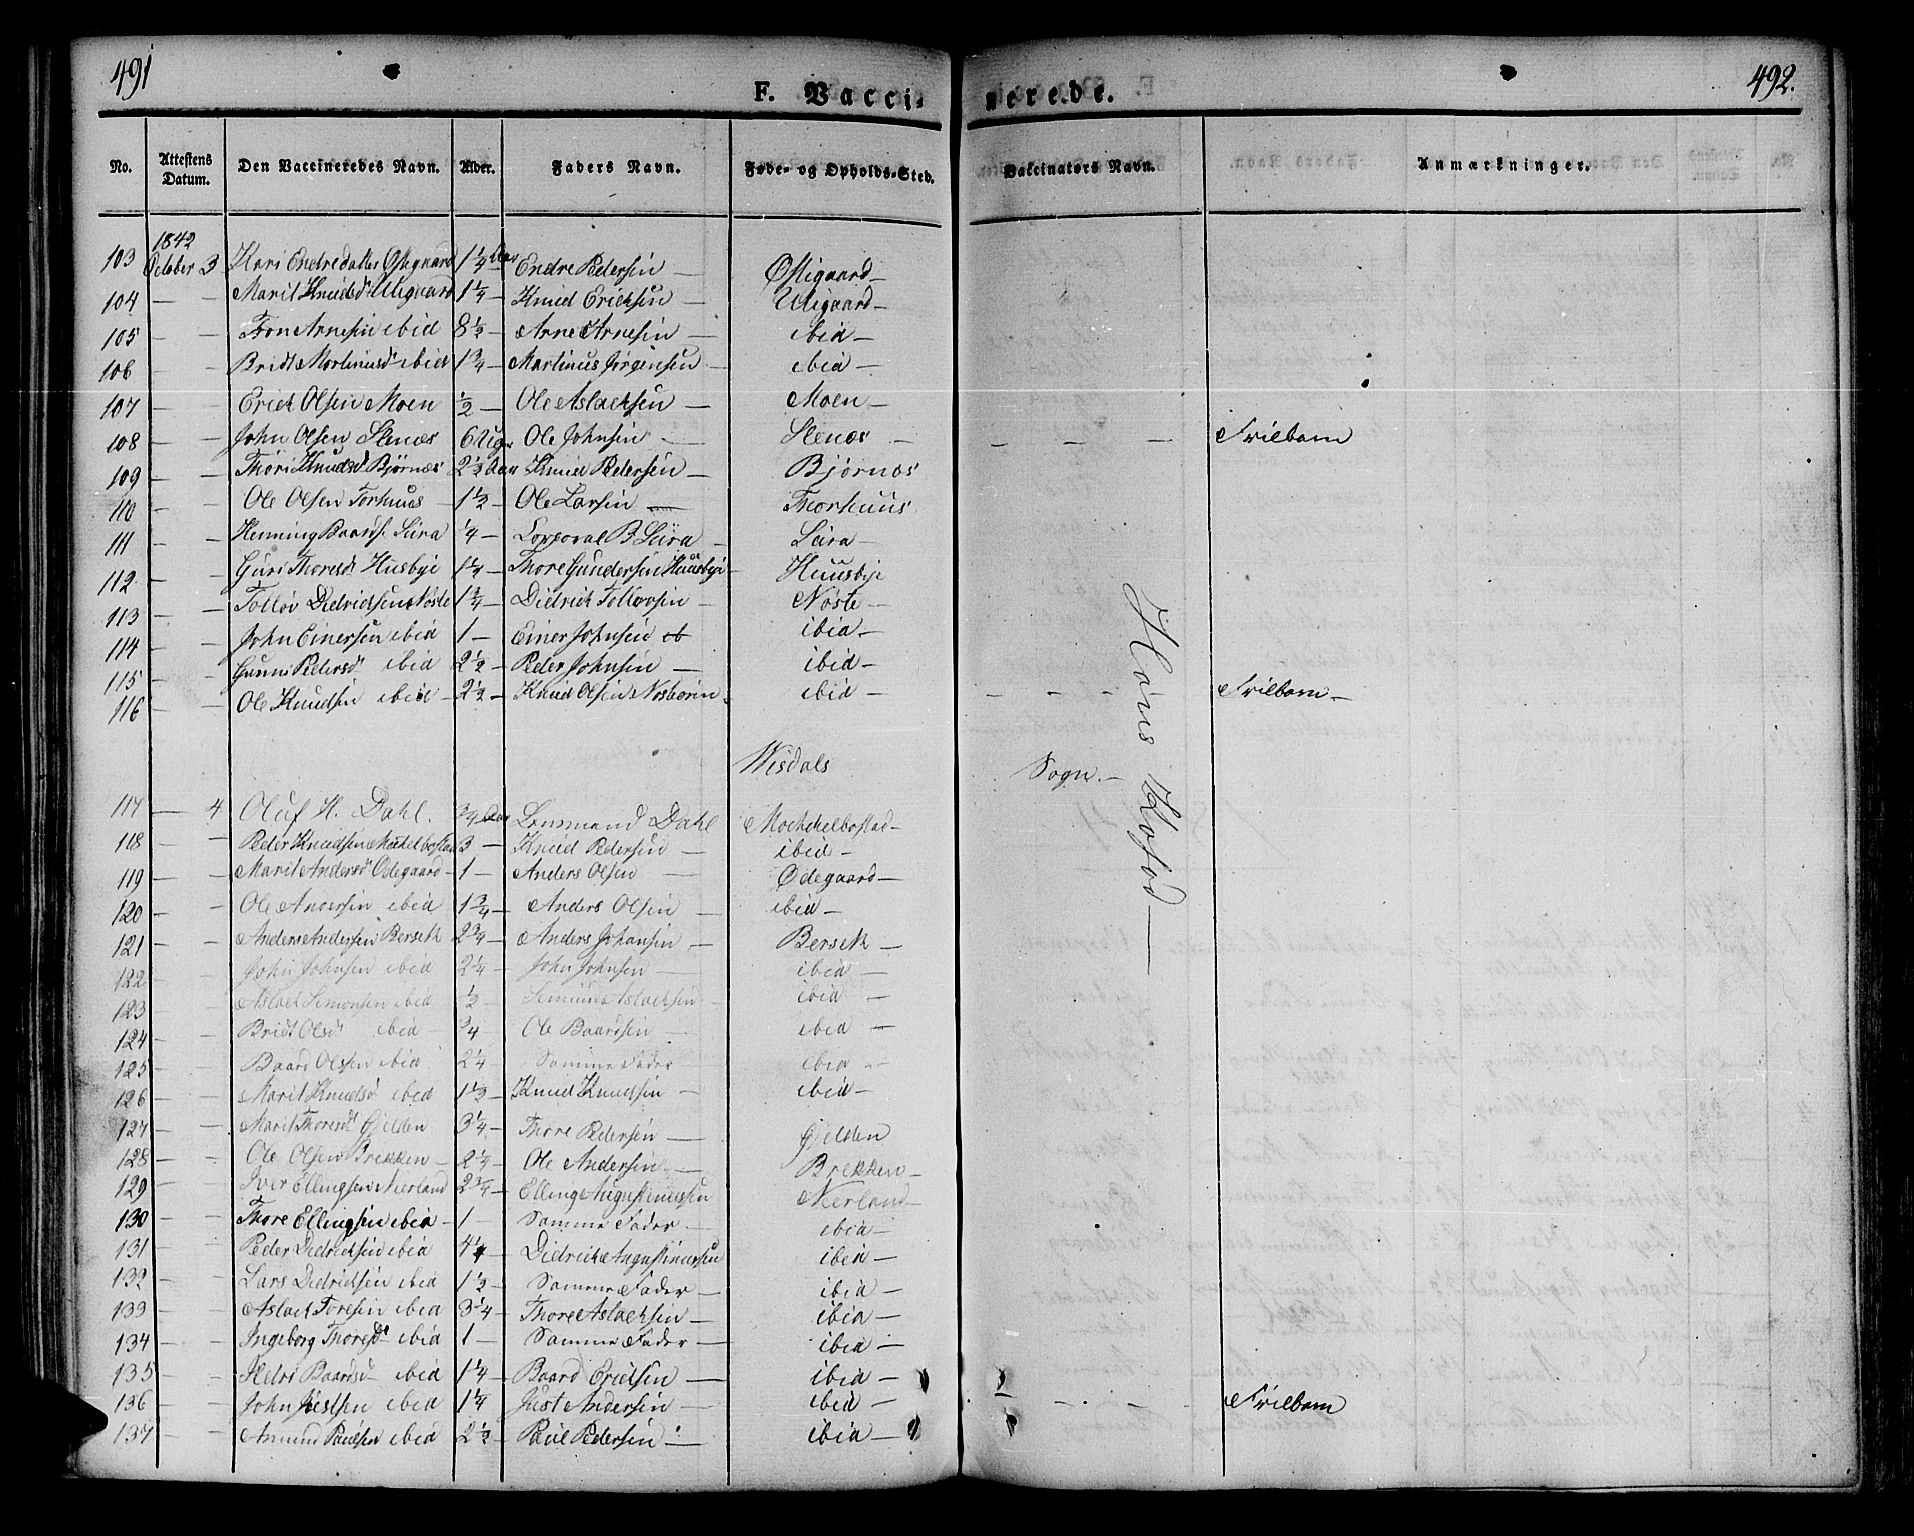 491
492.
F. Vacci-
nerede.
No. Attestens Datum. Den Vaccineredes Navn. Alder. Faders Navn. Føde- og Opholds-Sted. Vaccinators Navn. Anmærkninger.
1842
103 October 3 Kari Endredatter Østigaard 1 1/4 Aar Endre Pedersen — Østigaard —
104 — — Marit Knudsd. Utigaard 1 1/4 — Knud Ericksen — Utigaard —
105 — — Tron Arnesen ibid 8 1/2 — Arne Arnesen — ibid —
106 — — Bridt Martinusd. ibid 1 3/4 — Martinus Jørgensen — ibid —
107 — — Erick Olsen Moen 1/2 — Ole Aslachsen — Moen —
108 — — John Olsen Slenæs 6 Uger Ole Johnsen — Slenæs — — — — Frilbarn
109 — — Thøri Knudsd Bjørnæs 2 1/2 Aar Knud Pedersen — Bjørnæs
110 — — Ole Olsen Torhuus — 1 1/2 — Ole Larsen — Thorhuus
111 — — Henning Baards. Leira 1/4 — Corporal B. Leira — Leira —
112 — — Guri Thoresd Husbye 1 1/2 — Thore Gundersen Huusbye — Huusbye
113 — — Tolløv Didricksen Nøste 1 3/4 — Didrick Tollovsen — Nøste —
114 — — John Einersen ibid 1 — Einer Johnsen ib ibid —
115 — — Gunni Pedersd. ibid 2 1/2 — Peder Johnsen — ibid —
116 — — Ole Knudsen ibid — 2 1/2 — Knud Olsen ibid — — — — Frilbarn —
Wisdals Sogn. —
Hans Kofod —
117 — 4 Oluf H. Dahl. 3/4 Aar Lensmand Dahl Mochelbostad —
118 — — Peder Knudsen Mochelbostad 3 — Knud Pedersen — ibid —
119 — — Marit Andersd Ødegaard — 1 — Anders Olsen — Ødegaard —
120 — — Ole Andersen ibid 1 3/4 — Anders Olsen — ibid —
121 — — Anders Andersen Berseth 2 3/4 — Anders Johansen — Berseth —
122 — — John Johnsen ibid 2 1/4 — John Johnsen — ibid —
123 — — Aslach Simonsen ibid 1/2 — Simon Aslachsen — ibid —
124 — — Bridt Olsd. ibid — 3/4 Ole Baardsen — ibid —
125 — — Baard Olsen ibid 2 1/4 Samme Fader — ibid —
126 — — Marit Knudsd ibid 1 1/2 — Knud Knudsen — ibid —
127 — — Marit Thoresd. Gjelden 3 1/4 — Thore Pedersen — Gjelden
128 — — Ole Olsen Brekken — 2 1/4 — Ole Andersen — Brekken —
129 — — Iver Ellingsen Nerland 2 3/4 — Elling Augustinussen Neerland —
130 — — Thore Ellingsen ibid — 1 — Samme Fader — ibid —
131 — — Peder Didricksen ibid 4 1/4 — Didrich Augustinussen ibid —
132 — — Lars Didricksen ibid 1 1/2 — Samme Fader — ibid —
133 — — Aslach Toresen ibid 3 1/4 — Thore Aslachsen — ibid —
134 — — Ingeborg Thoresd ibid 1 — Samme Fader — ibid —
135 — — Baardsd ibid 1 1/4 — Baard Ericksen — ibid —
136 — — John Jostsen ibid 1 1/4 Just Andersen — ibid — — — — Frilbarn
137 — — Amund Paulsen ibid — 2 1/2 — Paul Pedersen — ibid —